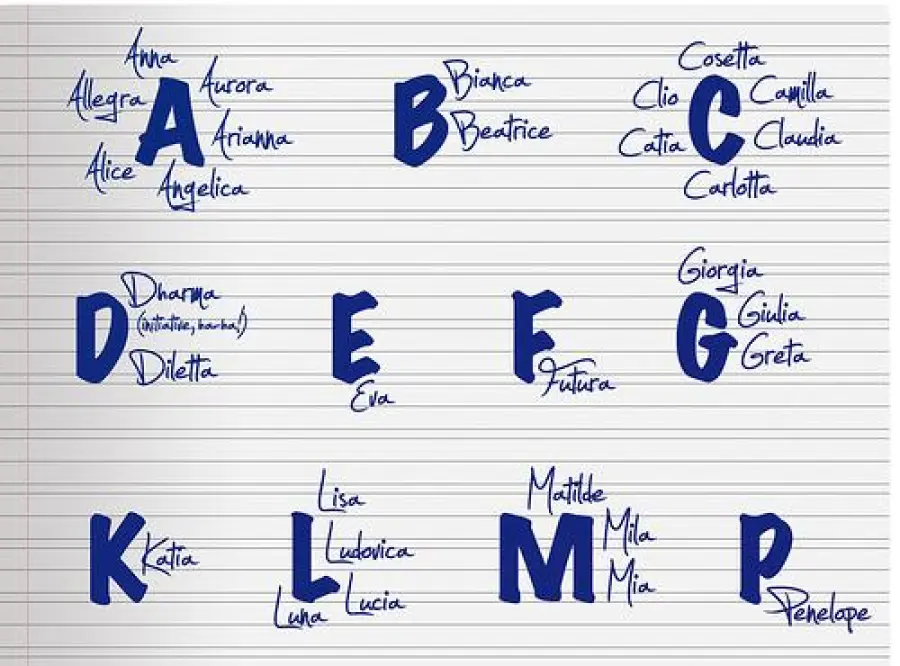 Anna
Allegra
A
Aurora
Arianna
Alice
Angelica
B
Bianca
Beatrice
Cosetta
Clio
C
Camilla
Catia
Claudia
Carlotta
D
Dharma
(initiative, ha-ha!)
Diletta
E
Eva
F
Futura
Giorgia
G
Giulia
Greta
K
Katia
Lisa
L
Ludovica
Luna
Lucia
Matilde
M
Mila
Mia
P
Penelope